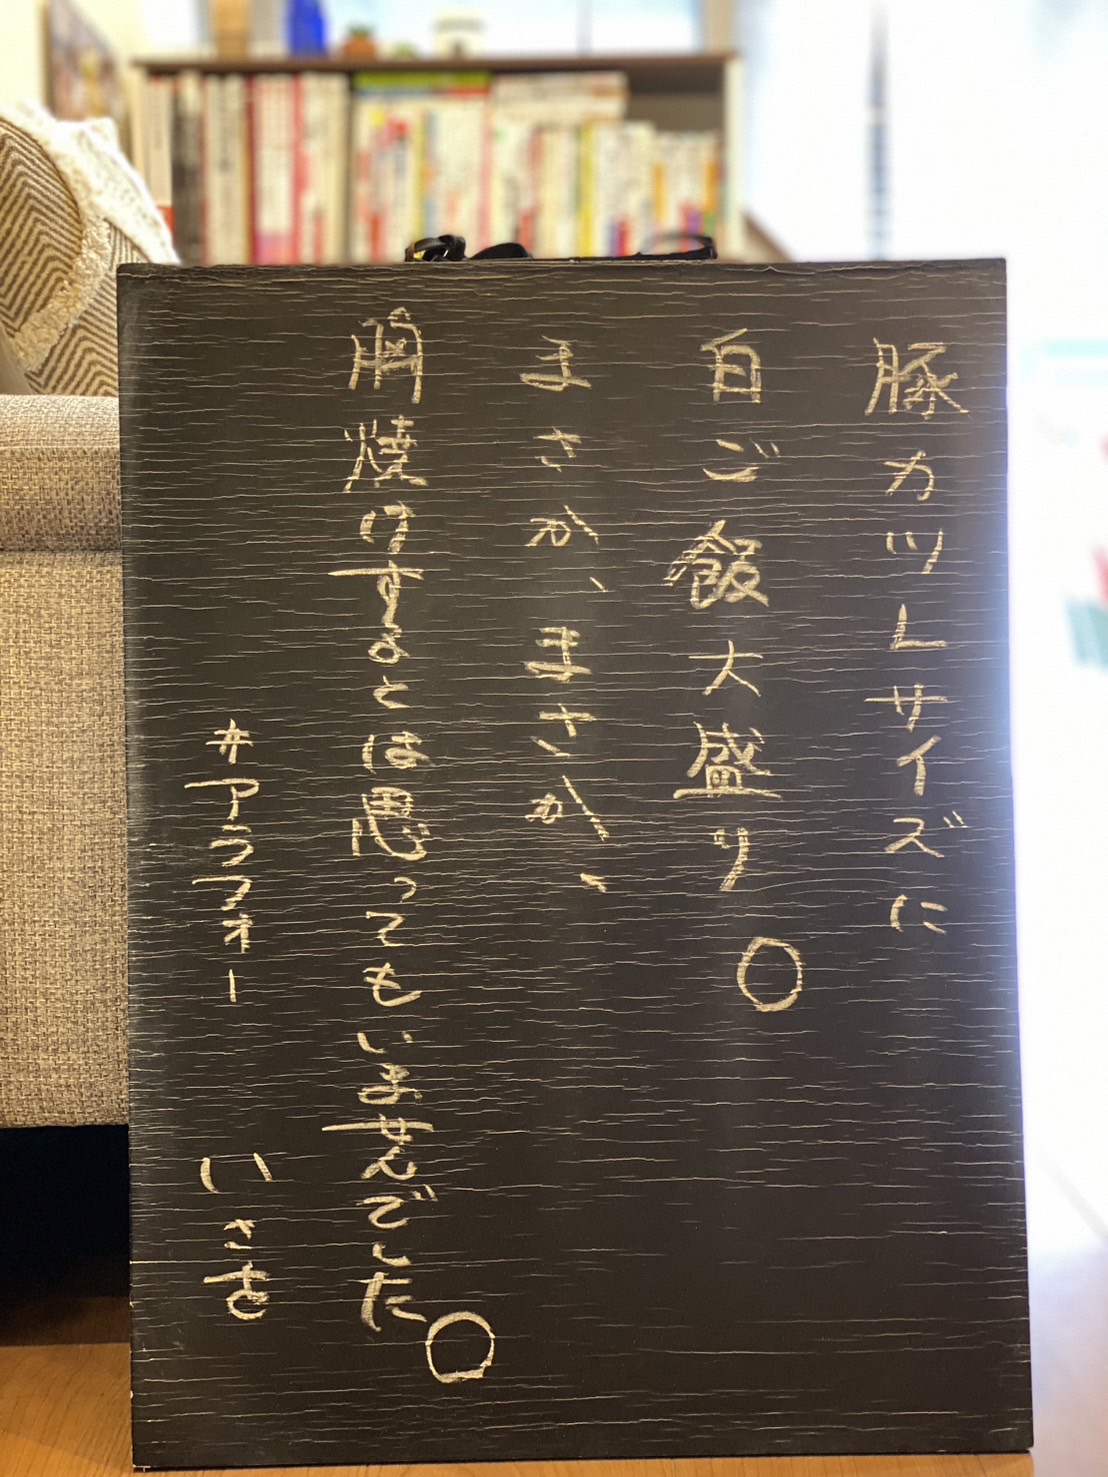 豚カツLサイズに
白ご飯大盛り。
まさか、まさか、
胸焼けするとは思ってもいませんでした。
#アラフォー いさお